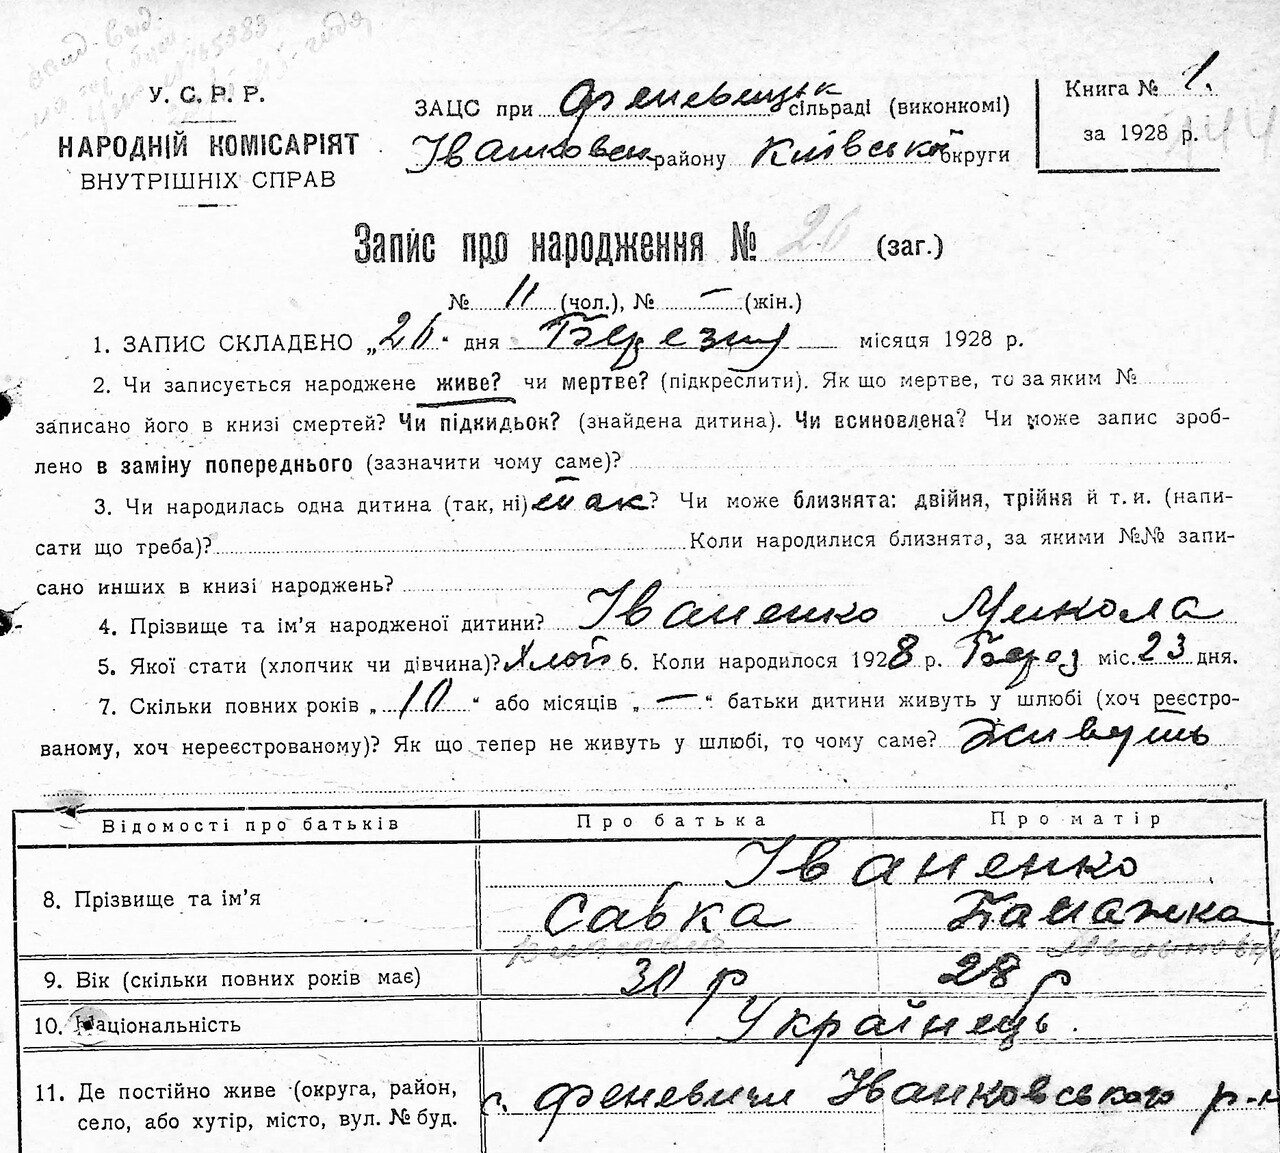 У. С. Р. Р.
НАРОДНІЙ КОМІСАРІЯТ
ВНУТРІШНІХ СПРАВ
ЗАЦС при Феневецьк сільраді (виконкомі)
Іванковськ району Київської округи
Книга № 1.
за 1928 р.
144
Запис про народження № 26 (заг.)
№ 11 (чол.), № — (жін.)
1. ЗАПИС СКЛАДЕНО „26" дня Березня місяця 1928 р.
2. Чи записується народжене живе? чи мертве? (підкреслити). Як що мертве, то за яким №
записано його в книзі смертей? Чи підкидьок? (знайдена дитина). Чи всиновлена? Чи може запис зроб-
лено в заміну попереднього (зазначити чому саме)?
3. Чи народилась одна дитина (так, ні) так? Чи може близнята: двійня, трійня й т. и. (напи-
сати що треба)? Коли народилися близнята, за якими №№ запи-
сано инших в книзі народжень?
4. Прізвище та ім'я народженої дитини? Іваненко Микола
5. Якої стати (хлопчик чи дівчина)? Хлоп 6. Коли народилося 1928 р. Берез міс. 23 дня.
7. Скільки повних років „10" або місяців „—" батьки дитини живуть у шлюбі (хоч реєстро-
ваному, хоч нереєстрованому)? Як що тепер не живуть у шлюбі, то чому саме? Живуть
Відомості про батьків Про батька Про матір
8. Прізвище та ім'я Іваненко
Савка
9. Вік (скільки повних років має) 30 р 28 р
10. Національність Українець.
11. Де постійно живе (округа, район,
село, або хутір, місто, вул. № буд.
с. Феневичи Іванковського р-н